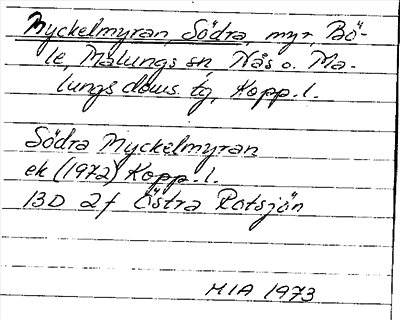 Myckelmyran, Södra, myr, Bö-
le, Malungs sn, Nås o. Ma-
lungs doms. tg, Kopp. l.
Södra Myckelmyran
ek (1972) Kopp. l.
13D 2f Östra Rotsjön
MIA 1973